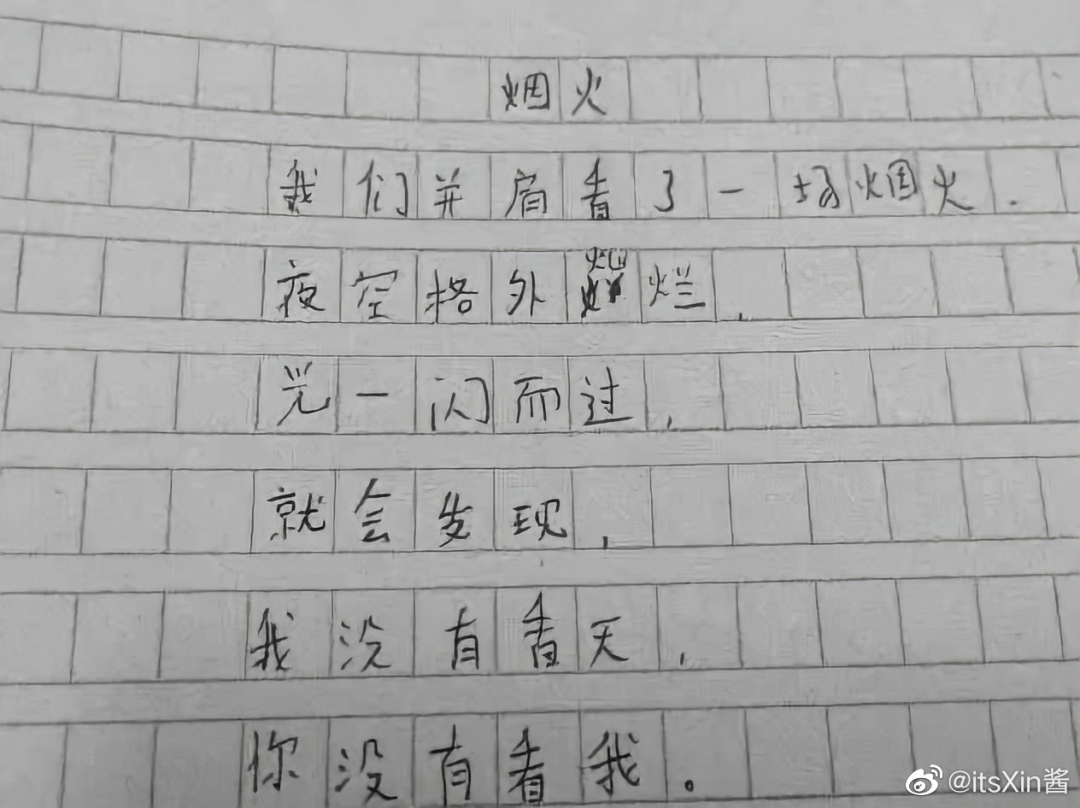 烟火
我们并肩看了一场烟火.
夜空格外灿烂,
光一闪而过,
就会发现,
我没有看天,
你没有看我。
@itsXin酱